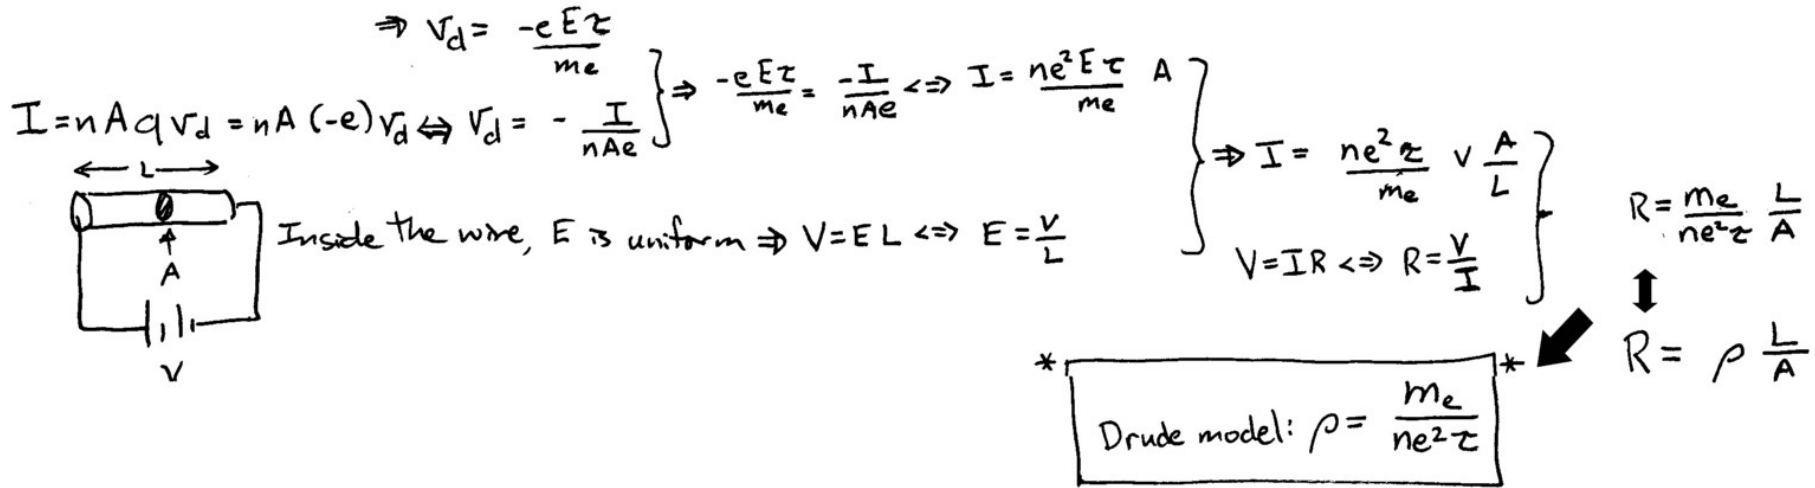 ⇒ v_d = -eEτ/m_e
I = nAqv_d = nA(-e)v_d ⇔ v_d = - I/nAe } ⇒ -eEτ/m_e = -I/nAe <=> I = ne²Eτ/m_e A
← L →
A
V
Inside the wire, E is uniform ⇒ V = EL <=> E = V/L
} ⇒ I = ne²τ/m_e V A/L
V = IR <=> R = V/I }
R = m_e/ne²τ L/A
↕
R = ρ L/A
* Drude model: ρ = m_e/ne²τ *